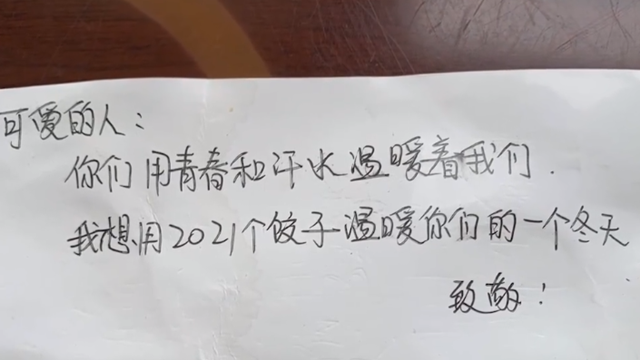 可爱的人：
你们用青春和汗水温暖着我们.
我想用2021个饺子温暖你们的一个冬天
致敬！